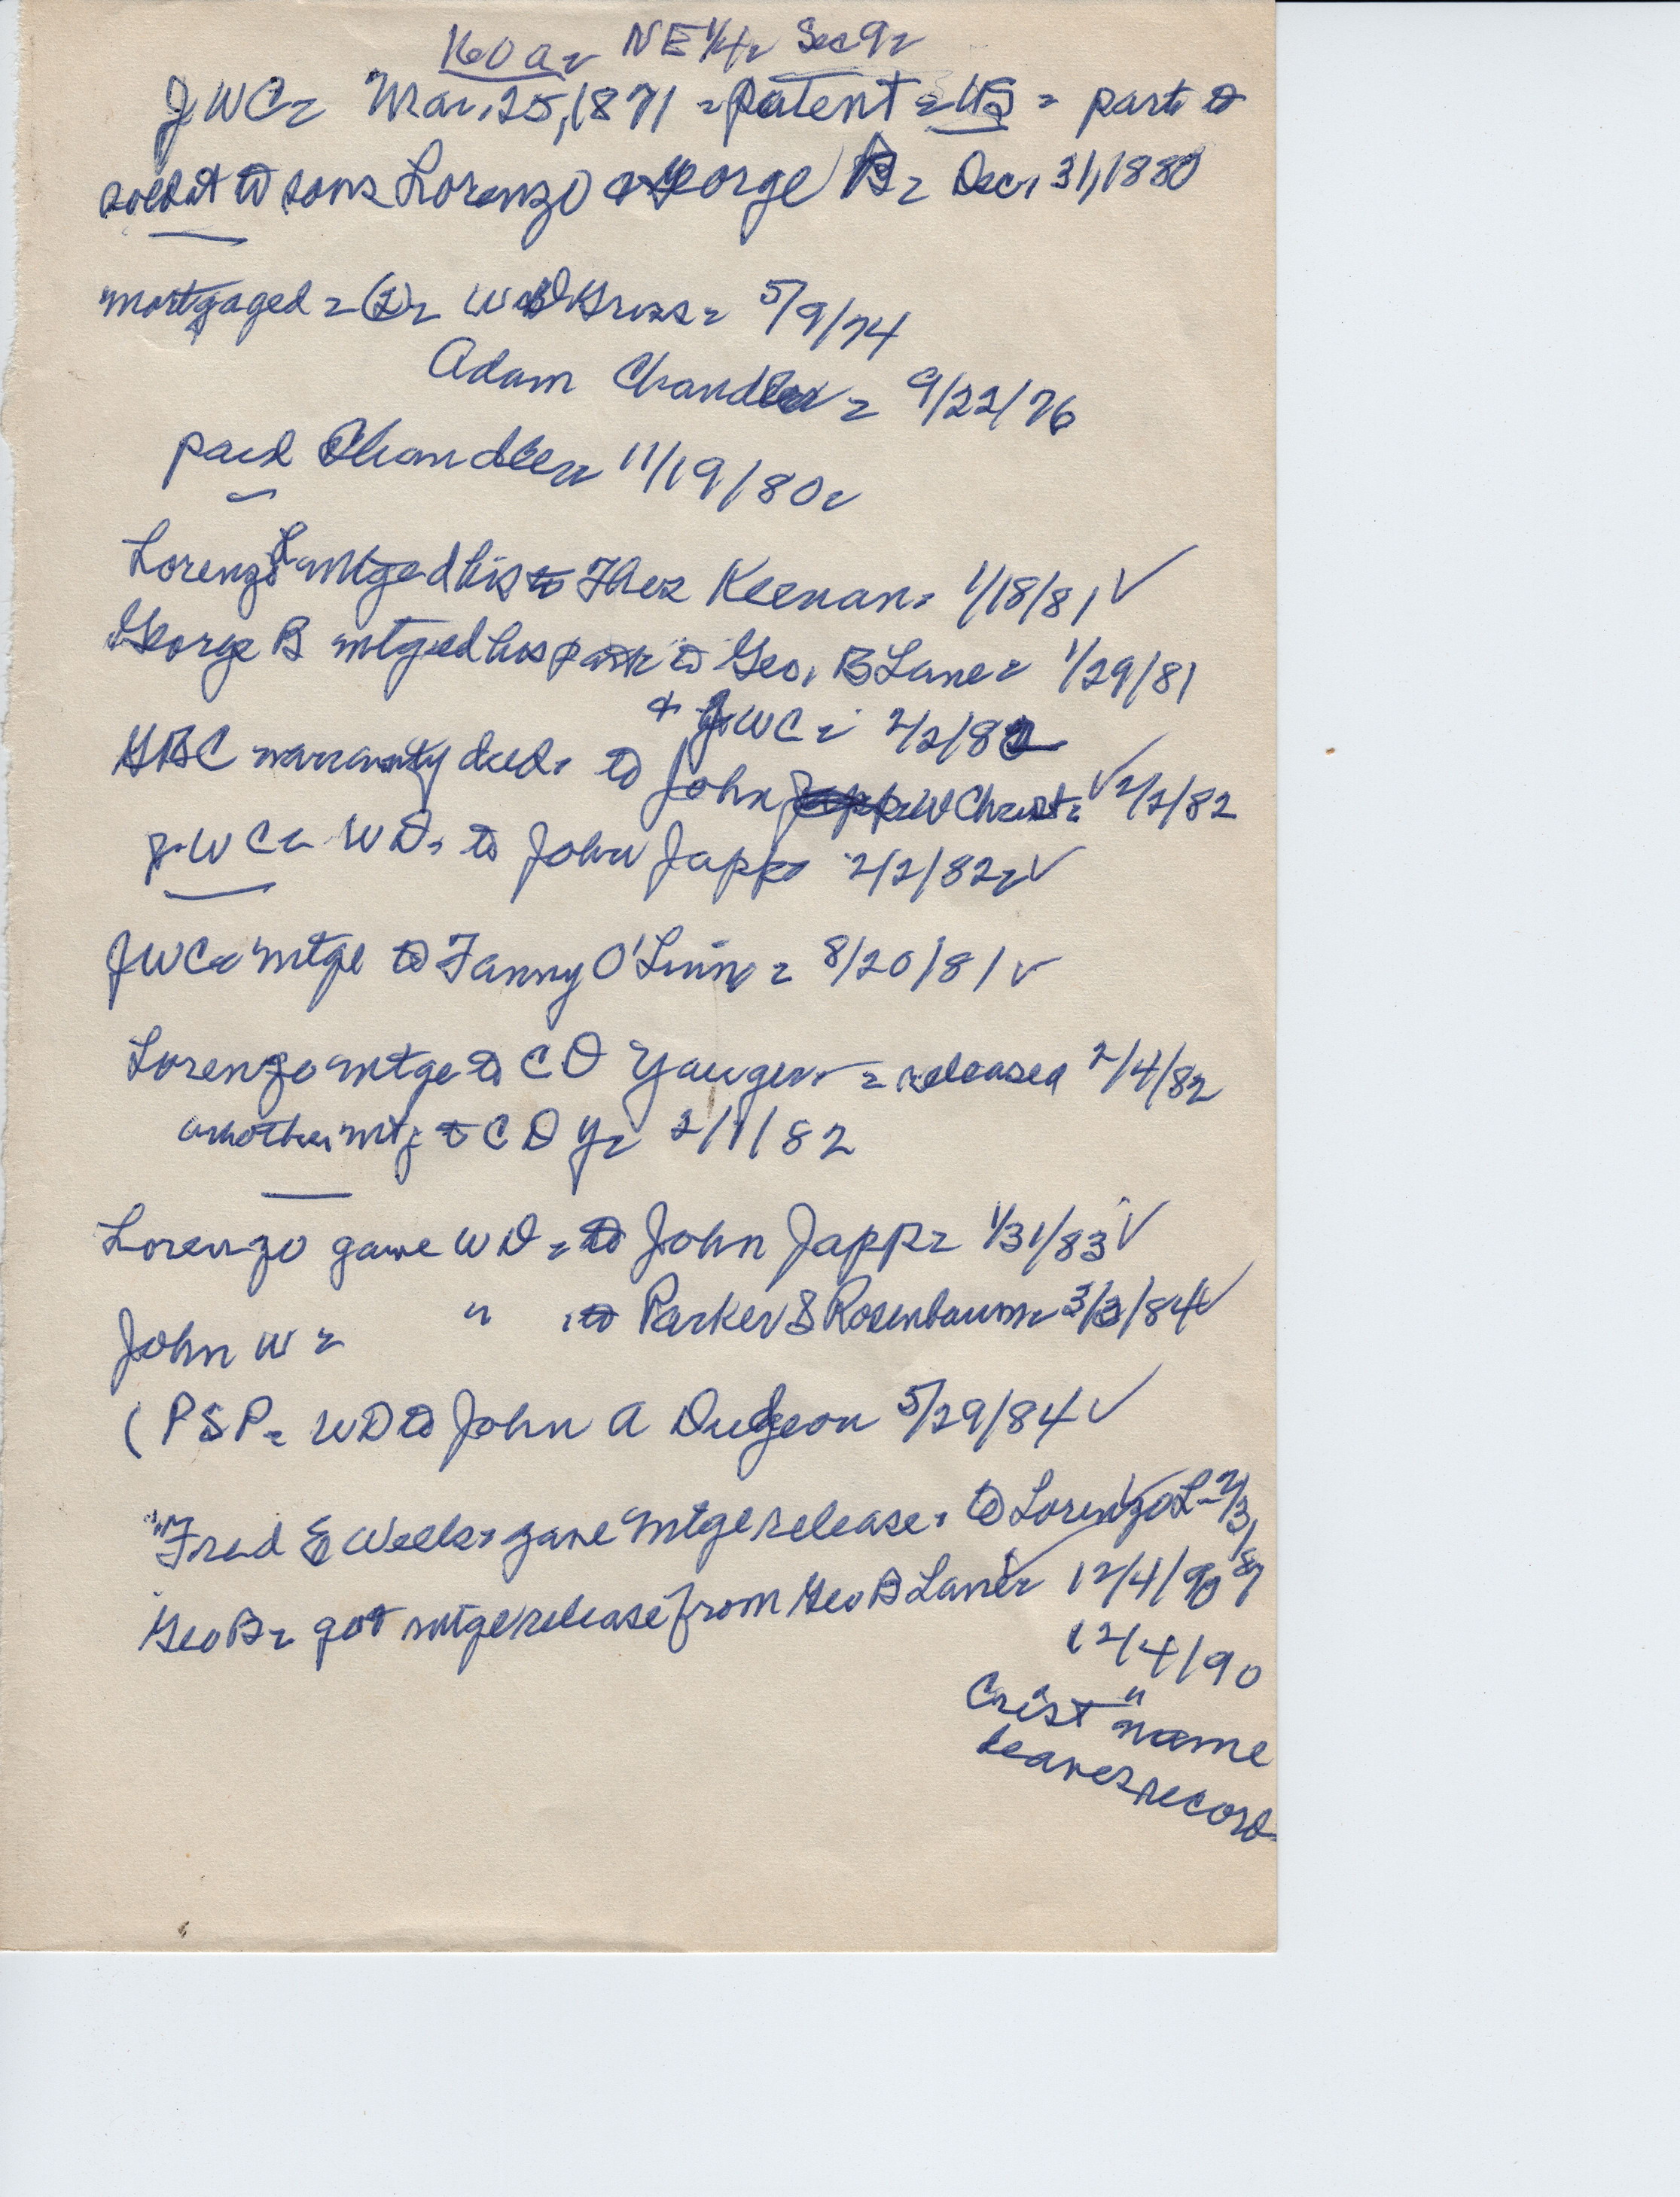 160 a - NE 1/4 - Sec 9 -
JWC - Mar. 25, 1871 - patent - US - part
sold it to sons Lorenzo & George B - Dec. 31, 1880
mortgaged - (2) - W 5/9/74
Adam Chandler - 9/22/76
paid Chandler 11/19/80 -
Lorenzo L mtged his to Thos Keenan - 1/18/81 ✓
George B mtged his part to Geo. B Lane - 1/29/81
& JWC - 2/2/82
GBC warranty deed - to John W Christ - ✓ 2/2/82
JWC - WD - to John Japp 2/2/82 - ✓
JWC - mtge to Fanny O'Linn - 8/20/81 ✓
Lorenzo mtge to C D Yauger - released 2/4/82
another mtg to C D Y - 2/1/82
Lorenzo gave WD - to John Japp - 1/31/83 ✓
John W - " to Parker S Rosenbaum - 3/3/84 ✓
(PSP - WD to John A Dudgeon 5/29/84 ✓
"Fred E Weeks - gave mtge release - to Lorenzo L - 2/3/87
Geo B - got mtge release from Geo B Lane - 12/4/90
12/4/90
Crist "name
leaves record